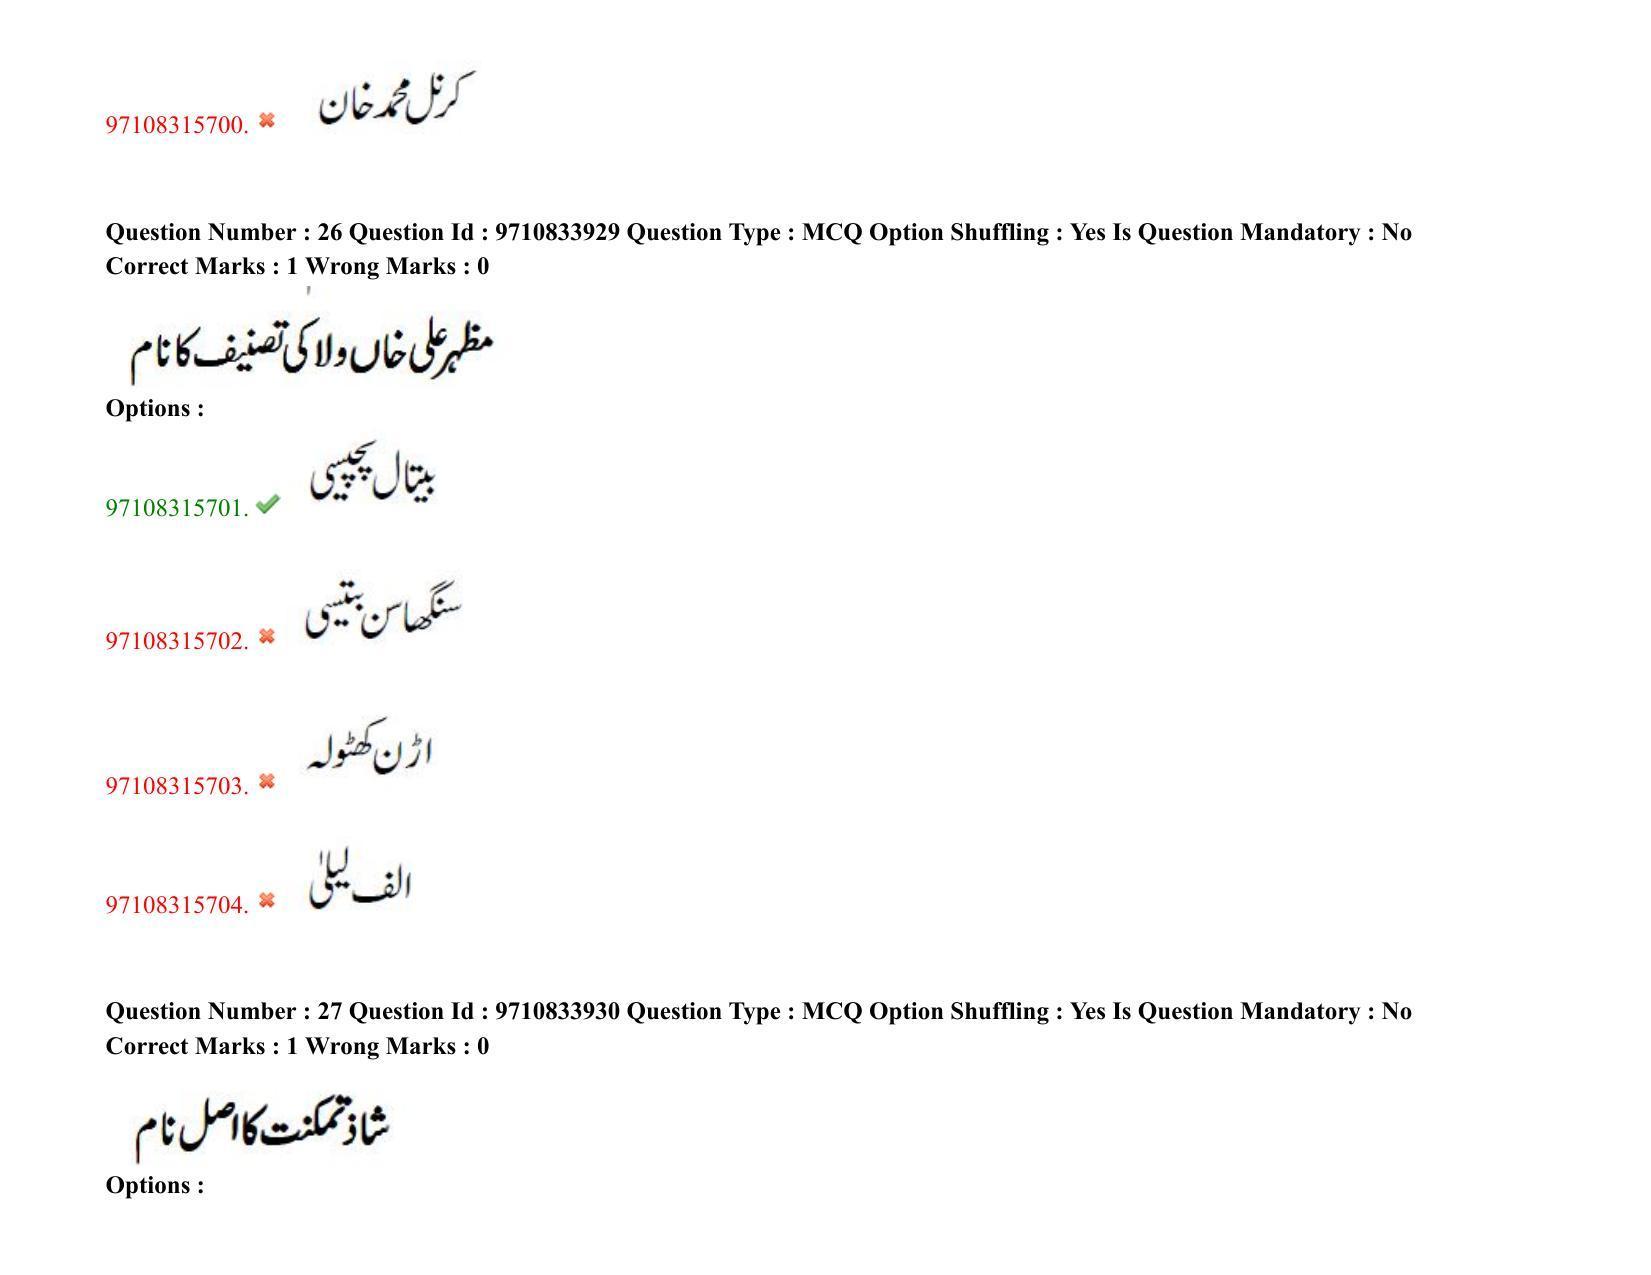 کرنل محمد خان
97108315700.
Question Number : 26 Question Id : 9710833929 Question Type : MCQ Option Shuffling : Yes Is Question Mandatory : No
Correct Marks : 1 Wrong Marks : 0
مظہر علی خاں ولا کی تصنیف کا نام
Options :
بیتال پچیسی
97108315701.
سنگھاسن بتیسی
97108315702.
اڑن کھٹولہ
97108315703.
الف لیلیٰ
97108315704.
Question Number : 27 Question Id : 9710833930 Question Type : MCQ Option Shuffling : Yes Is Question Mandatory : No
Correct Marks : 1 Wrong Marks : 0
شاذ تمکنت کا اصل نام
Options :